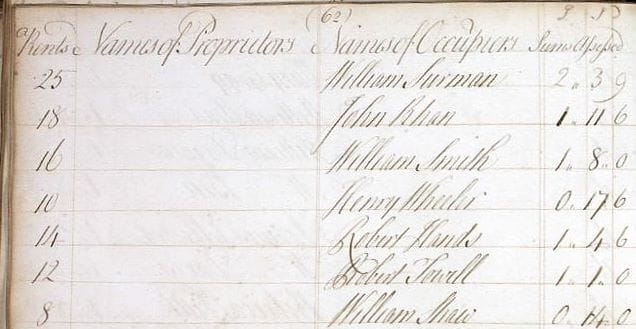 (62)
Rents Names of Proprietors Names of Occupiers Sums Assessed
25 William Surman 2 .. 3 9
18 John 1 .. 11 6
16 William Smith 1 .. 8 .. 0
10 Henry Wheeler 0 .. 17 6
14 Robert Hands 1 .. 4 6
12 Robert 1 .. 1 .. 0
8 William Shaw 0 .. 14 .. 0